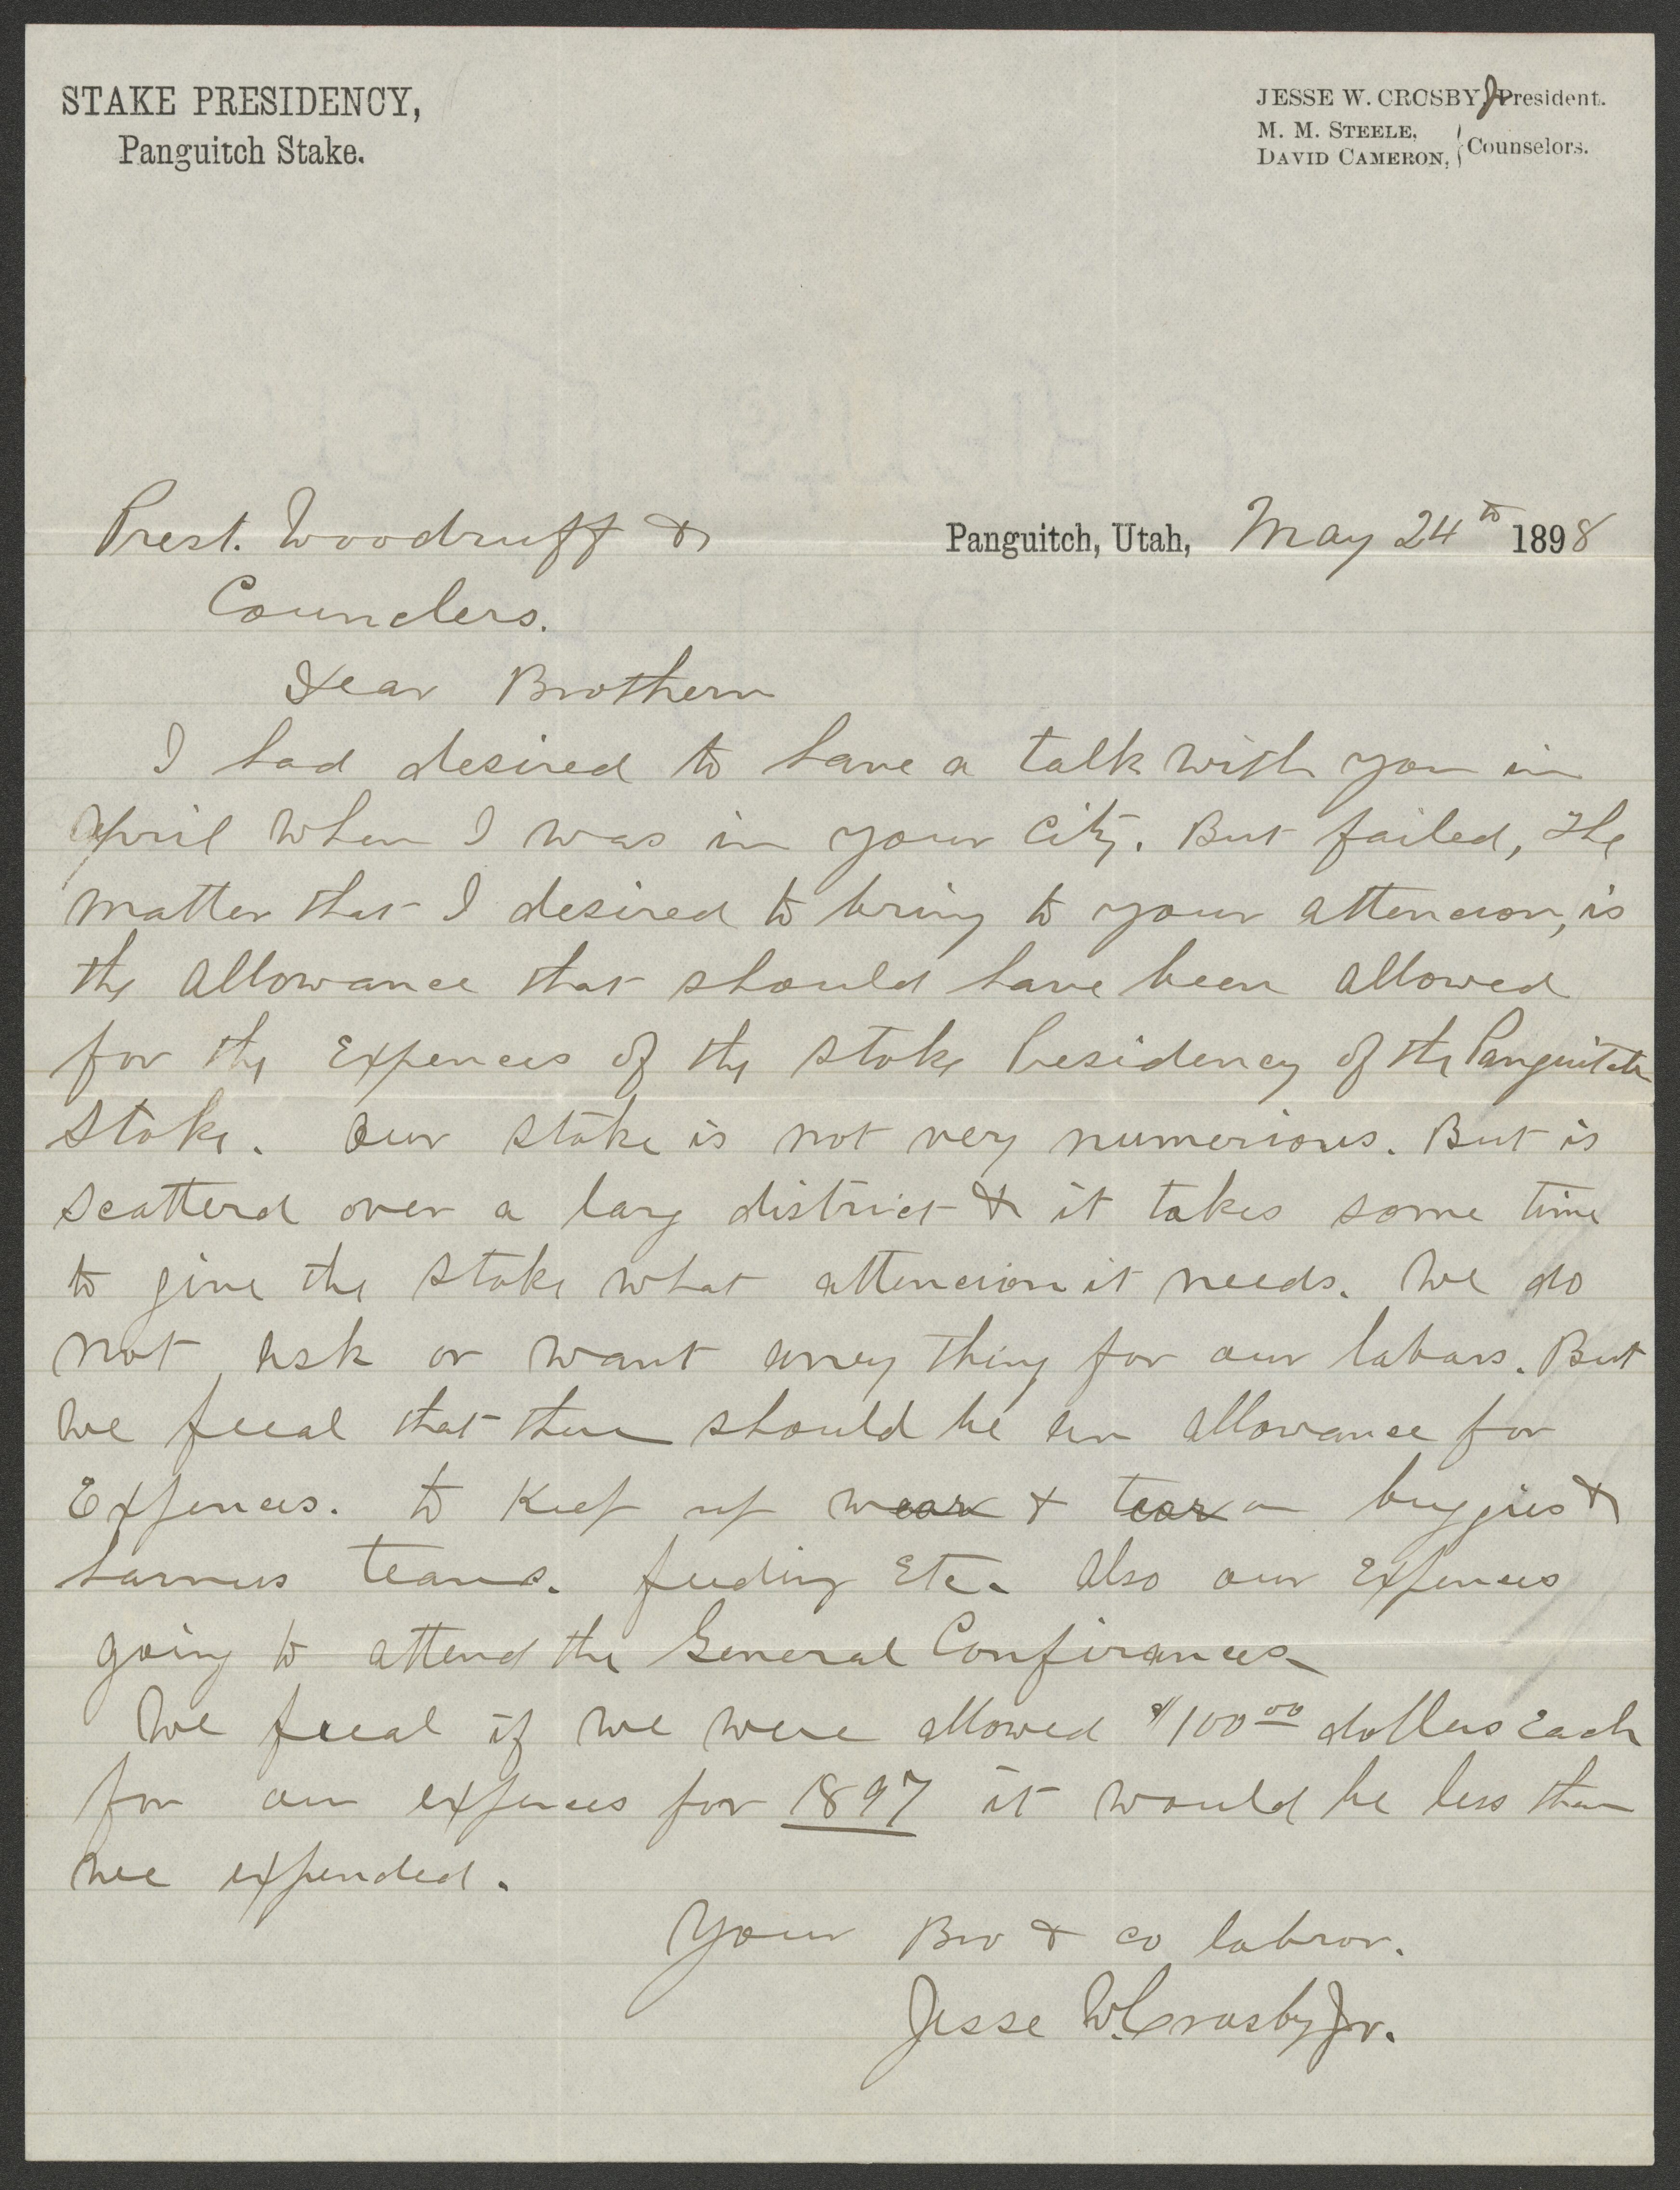 STAKE PRESIDENCY,
Panguitch Stake.
JESSE W. CROSBY, Jr President.
M. M. STEELE,
DAVID CAMERON, } Counselors.
Prest. Woodruff &
Panguitch, Utah, May 24th 1898
Counclers.
Dear Brothern
I had desired to have a talk with you in
April when I was in your city. But failed, The
matter that I desired to bring to your attencion, is
the allowance that should have been allowed
for the Expences of the Stake Presidency of the Panguitch
Stake. Our stake is not very numerious. But is
scatterd over a larg district & it takes some time
to give the Stake what attencion it needs. We do
not ask or want anney thing for our labars. But
we feeal that there should be an allowance for
Expences. to Keep up wear & tear on buggies &
harness teams. feeding Etc. Also our Expences
going to attend the General Confirances
We feeal if we were allowed $100.00 dollers Each
for our expences for 1897 it would be less than
wee expended.
Your Bro & co labror.
Jesse W. Crosby Jr.